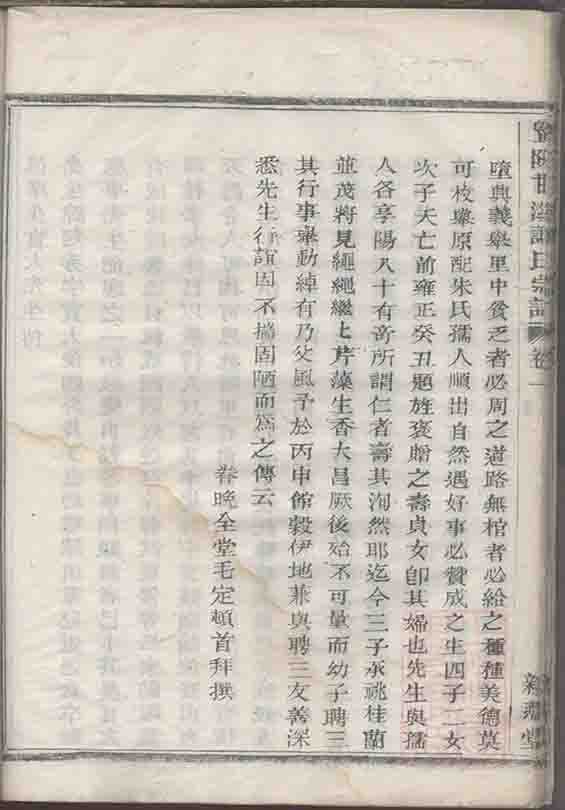 墮典義舉里中貧乏者必周之道路無棺者必給之種種美德莫
可枚舉原配朱氏孺人順出自然遇好事必贊成之生四子二女
次子夭亡前雍正癸丑題旌褒贈之壽貞女卽其婦也先生與孺
人各享陽八十有奇所謂仁者壽其洵然耶迄今三子承祧桂蘭
並茂將見繩繩繼上芹藻生香大昌厥後始不可量而幼子聘三
其行事舉動綽有乃父風予於丙申館穀伊地兼與聘三友善深
悉先生行誼固不揣固陋而爲之傳云
眷晚全堂毛定頓首拜撰
氏宗譜 卷一